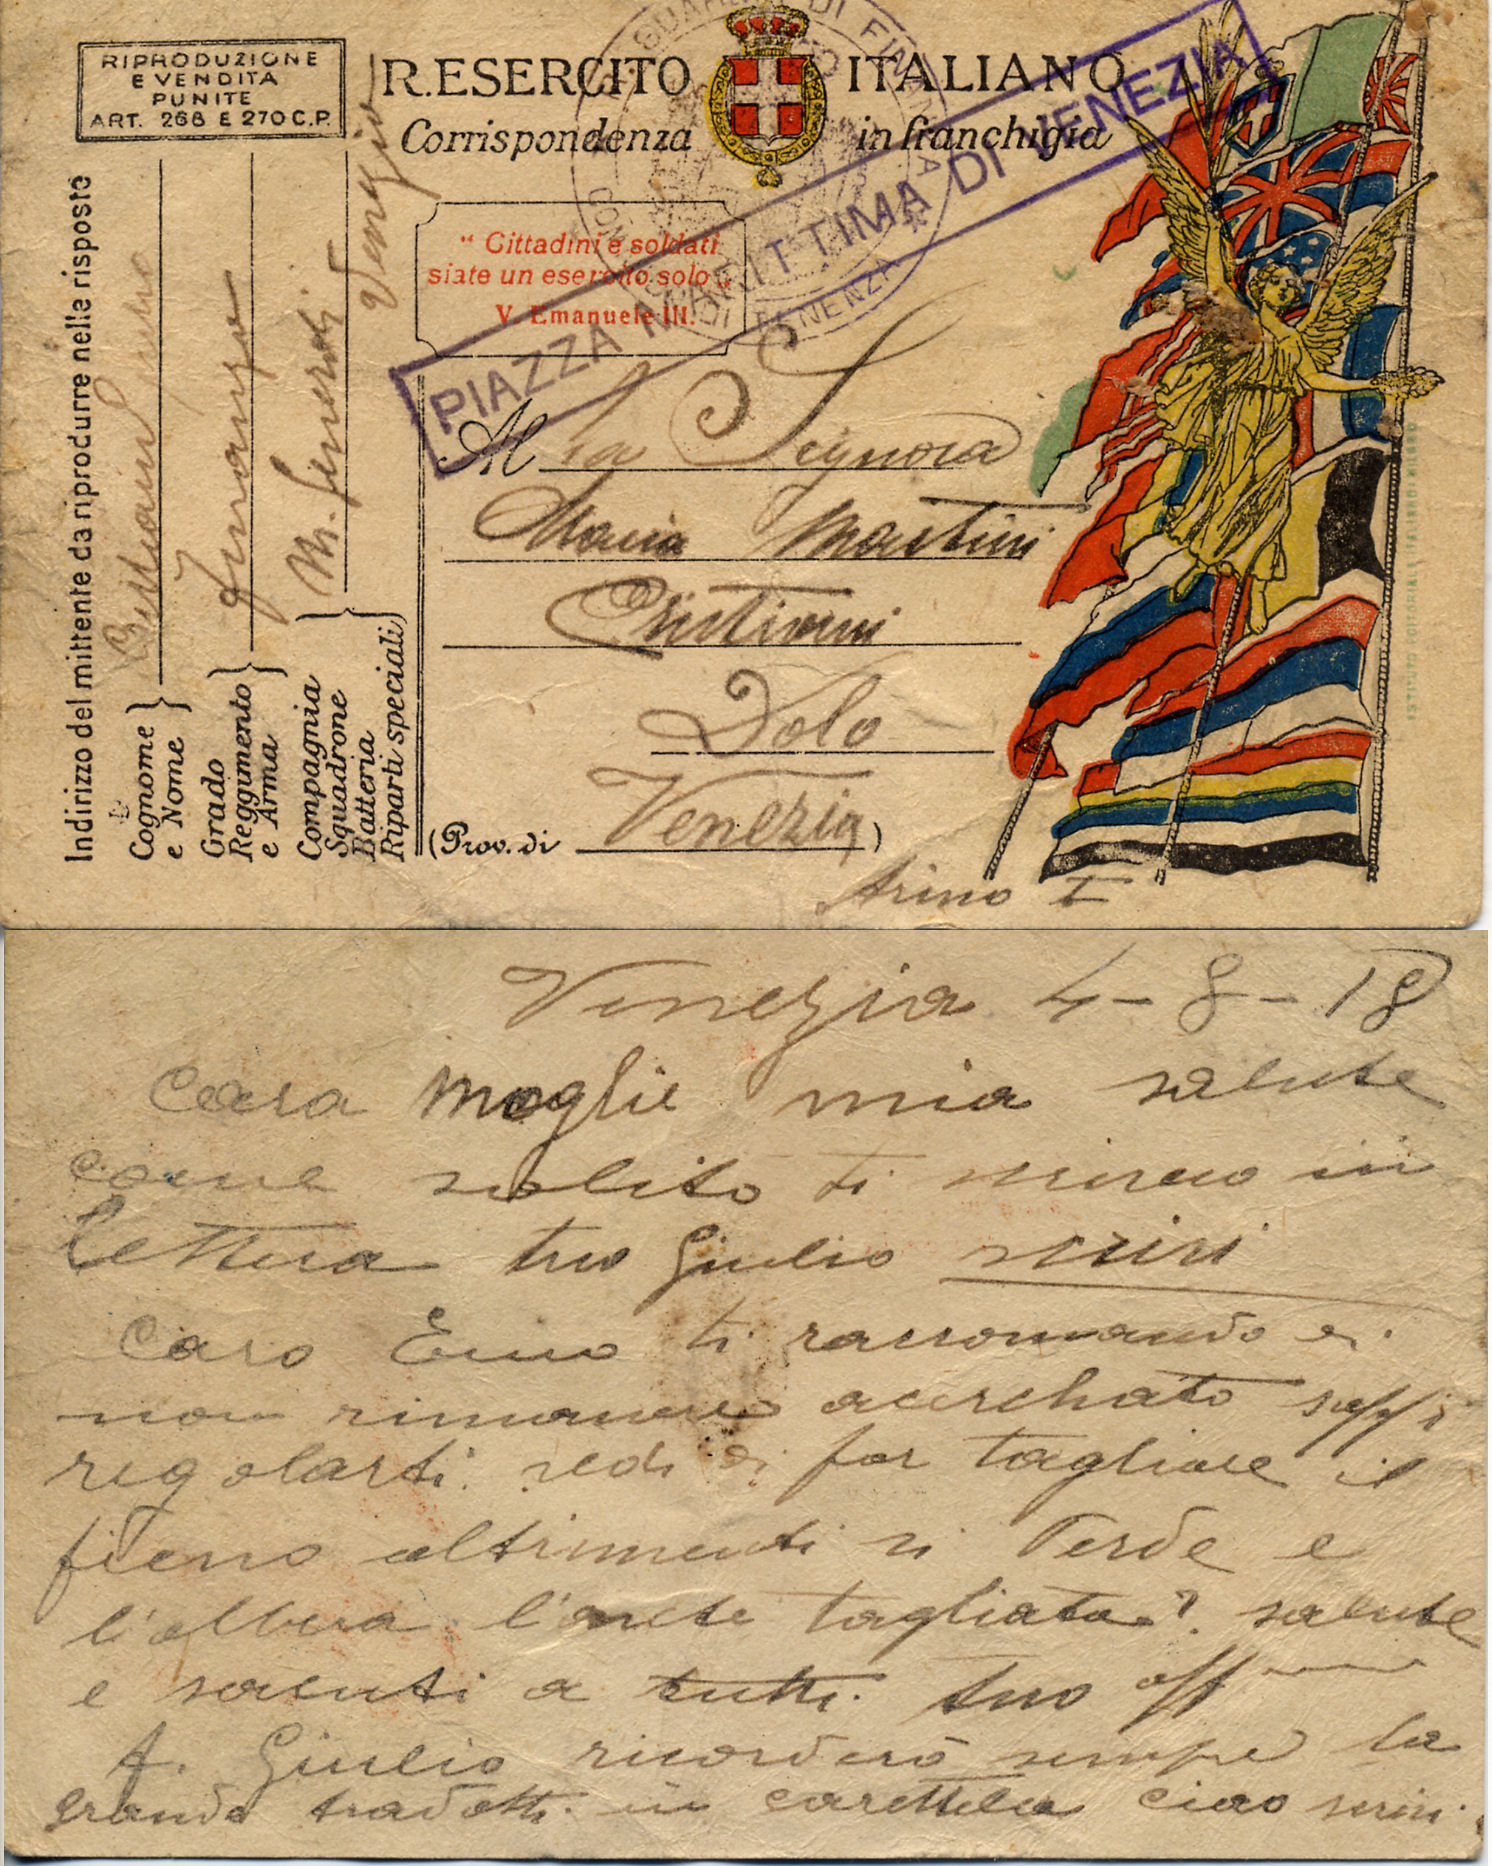 RIPRODUZIONE
E VENDITA
PUNITE
ART. 268 E 270 C.P.
R. ESERCITO ITALIANO
Corrispondenza in franchigia
R. GUARDIA DI FINANZA
DI VENEZIA
PIAZZA MARITTIMA DI VENEZIA
" Cittadini e soldati
siate un esercito solo „
V. Emanuele III.
Indirizzo del mittente da riprodurre nelle risposte
Cognome
e Nome
Grado
Reggimento
e Arma
Finanza
Compagnia
Squadrone
Batteria
Riparti speciali
Venezia
Al la Signora
Maria Martini
Cristiani
Dolo
(Prov. di Venezia)
Arino I
Venezia 4-8-18
Cara moglie mia salute
come solito ti scrivo in
lettera tuo Giulio scrivi
Caro ti raccomando
non rimanere acerchato sappi
regolarti. vedi di far tagliare il
fieno altrimenti si perde e
l'albera l'avete tagliata? salute
e saluti a tutti. tuo aff
A. Giulio ricorderò sempre la
granda tradotti in carettela ciao